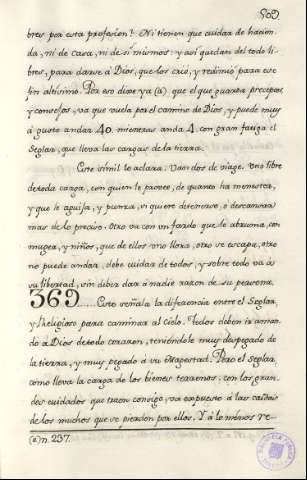 509
bres por esta profesion! Ni tienen que cuidar de hacien-
da, ni de casa, ni de si mismos: y asi quedan del todo li-
bres, para darse á Dios, que los crió, y redimió para ese
fin altisimo. Por eso dixe ya (a) que el que guarda preceptos,
y consejos, ya que vuela por el camino de Dios, y puede muy
á gusto andar 40. mientras anda 4. con gran fatiga el
Seglar, que lleva las cargas de la tierra.
Este simil lo aclara. Van dos de viage. Uno libre
de toda carga, con quien le provee, de quanto ha menester,
y que le aguija, y punza, si quiere detenerse, ó descansar
mas de lo preciso. Otro va con un fardo que le abruma, con
muger, y niños, que de ellos uno llora, otro se escapa, otro
no puede andar, debe cuidar de todos, y sobre todo va á
su libertad, sin deber dar á nadie razon de su persona.
369.....Esto señala la diferencia entre el Seglar,
y Religioso para caminar al cielo. Todos deben ir aman-
do á Dios de todo corazon, teniendole muy despegado de
la tierra, y muy pegado a su Magestad. Pero el Seglar,
como lleva la carga de los bienes terrenos, con los gran-
des cuidados que traen consigo, va expuesto á las caidas
de los muchos que se pierden por ellos. Y á lo menos re-
(a) n. 237.